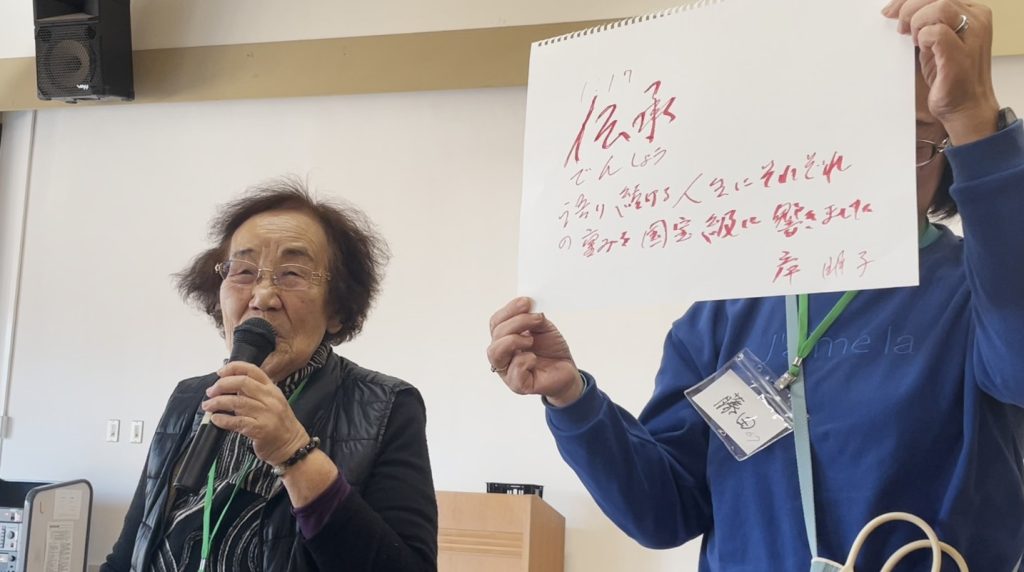 1.17
伝承
でんしょう
語り続ける人生にそれぞれ
の重みを国宝級に響きました
岸 明子
J'aime la
藤田